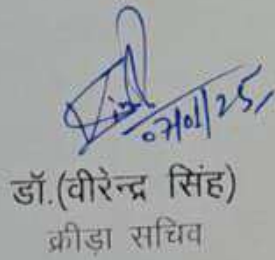 07/01/25
डॉ.(वीरेन्द्र सिंह)
क्रीड़ा सचिव